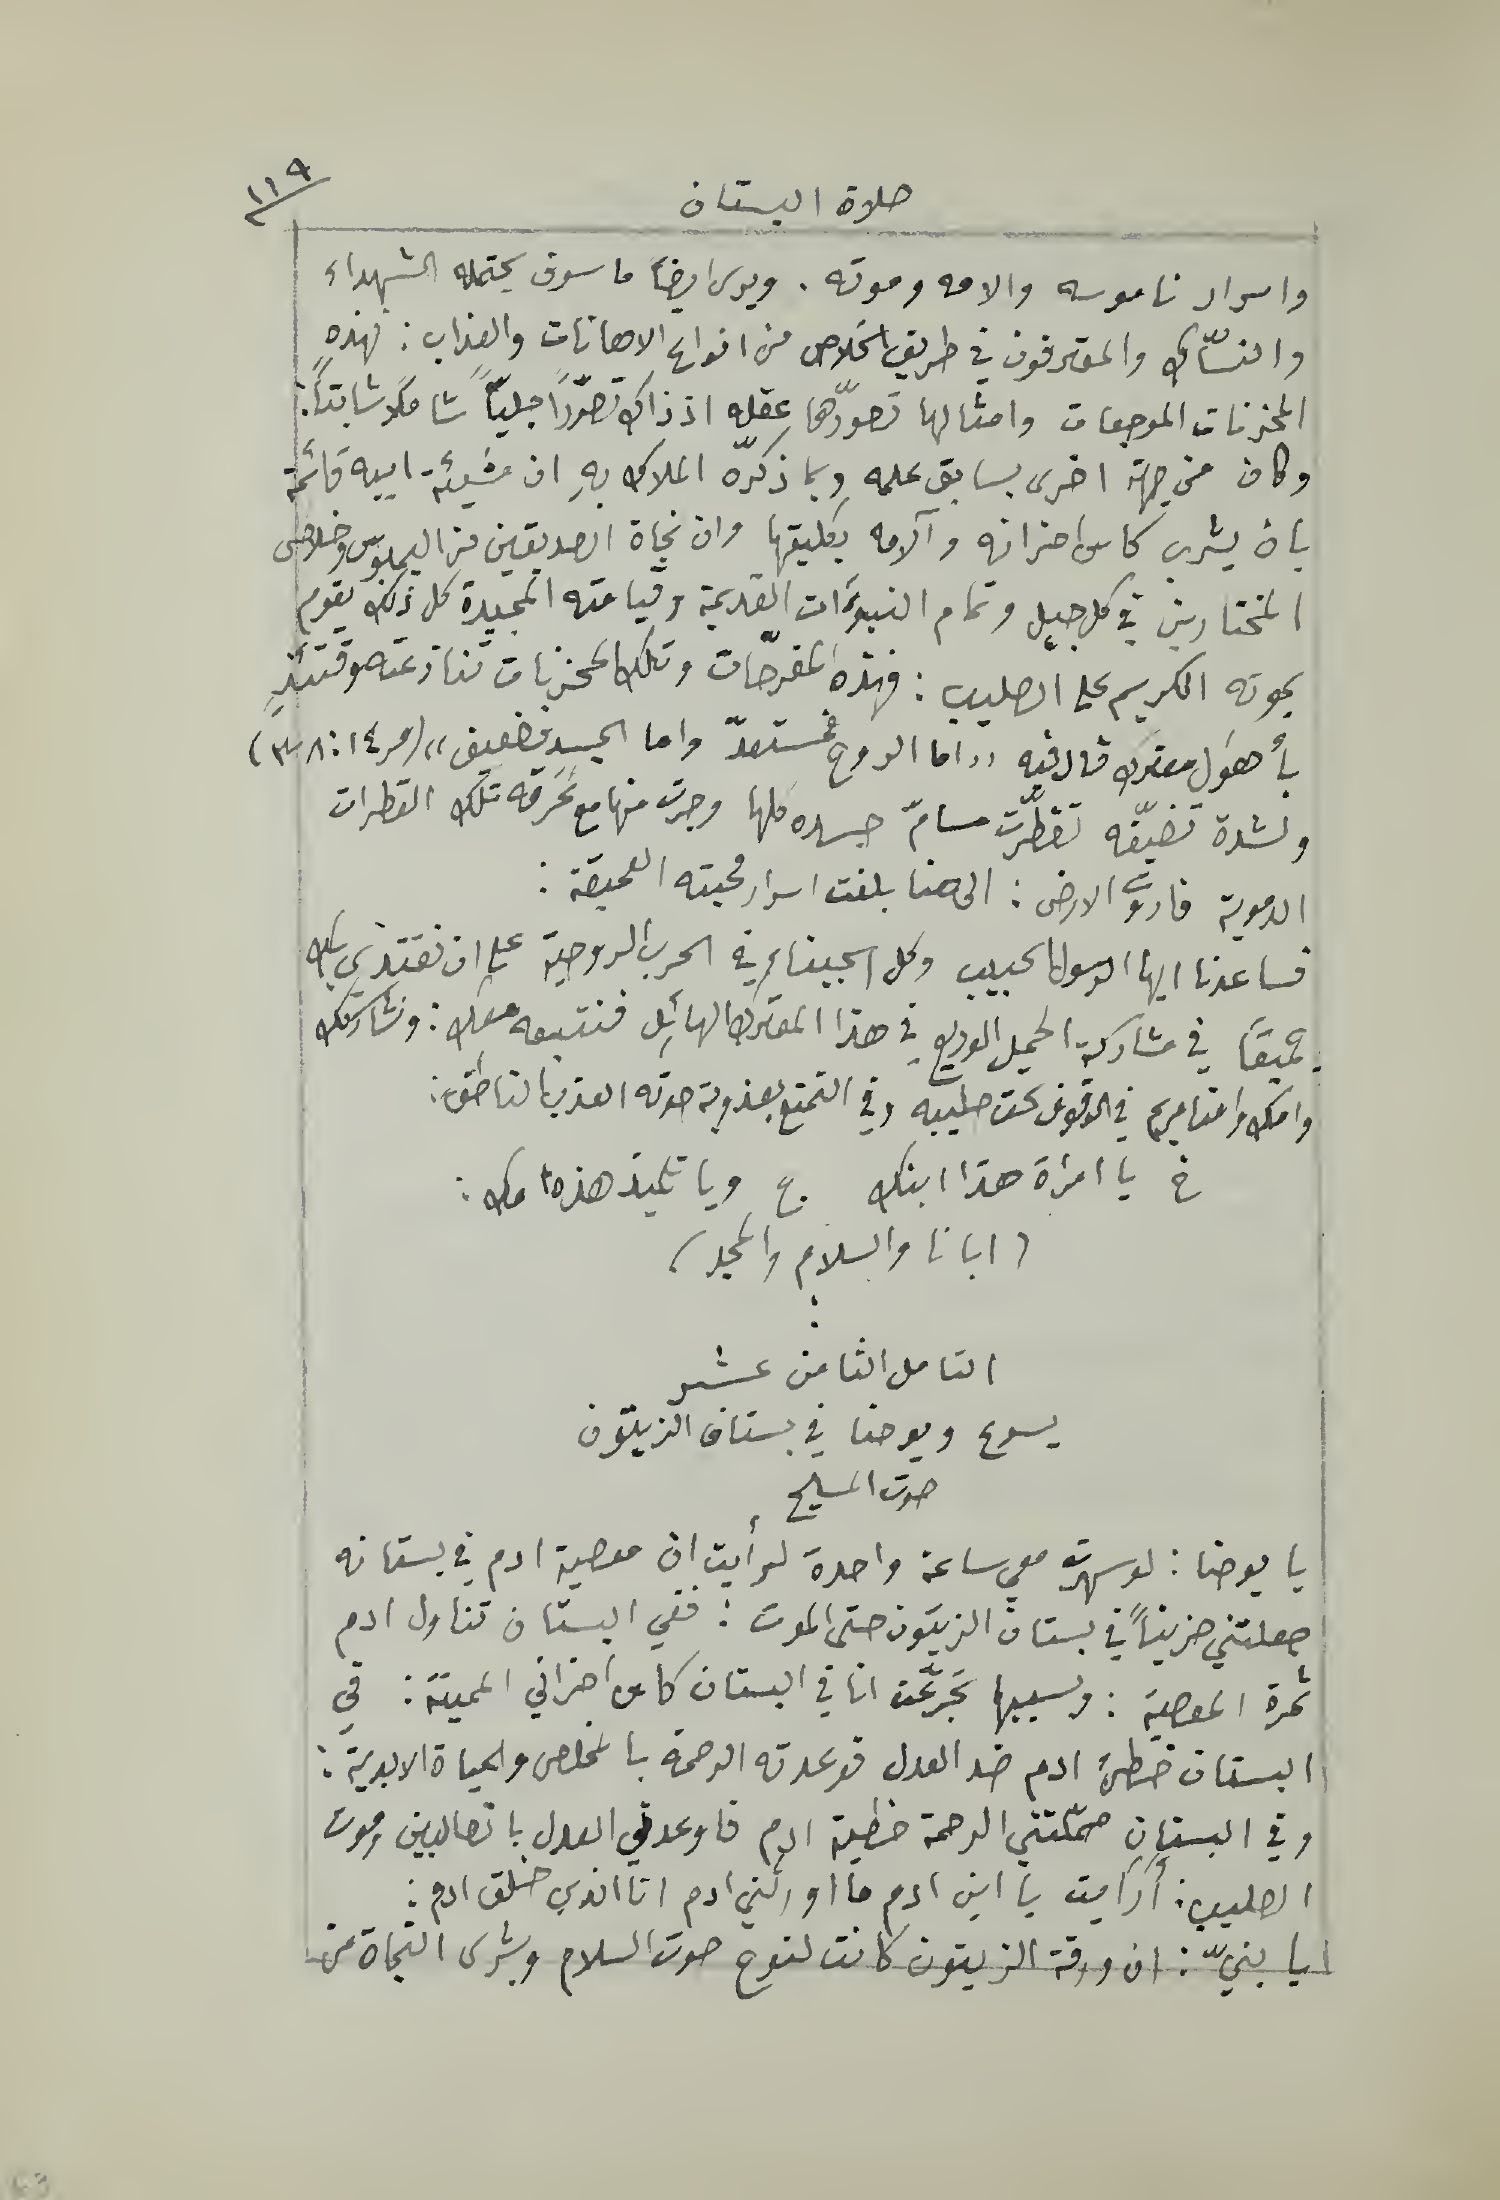 ١١٩
صلاة البستان
واسرار ناموسه والامه وموته . ويرى ايضاً ما سوف يحتمله الشهداء
والنسّاك والمعترفون في طريق الخلاص من انواع الاهانات والعذاب : فهذهِ
المحزنات الموجعات وامثالها تصوّرها عقله اذ ذاك تصوّراً جليّاً شاملاً ثابتاً :
وكان من جهة اخرى بسابق علمه وبما ذكّره الملاك بهِ ان مشيئة ابيه قائمة
بان يشرب كاس احزانه وآلامه بكليتها وان نجاة الصديقين من اليمبوس وخلاص
المختارين في كل جيل وتمام النبوءات القديمة وقيامته المجيدة كل ذلك يقوم
بموته الكريم على الصليب : فهذه المفرحّات وتلك المحزنات تنازعته وقتئذٍ
بأهوَل معترك قال فيه ,, اما الروح فمستعدّ واما الجسد فضعيف ,, (مر ١٤ : ٣٨)
ولشدة تضيّقه تقطّرت مسامّ جسده كلها وجرت منها مع عَرَقه تلك القطرات
الدموية فاروت الارض : الى هنا بلغت اسرار محبته العميقة :
فساعدنا ايها الرسول الحبيب وكل الجيناء في الحرب الروحية على ان نقتدي بك
عميقاً في مشاركة الحمل الوديع في هذا المعترك الهائل فنتبعه معك : ونشاركك
وامك وامنا مريم في الوقوف تحت صليبه وفي التمتع بعذوبة صوته العذب الناطق :
خ يا امرأة هذا ابنك ج ويا تلميذ هذه امك :
( ابانا والسلام والمجد )
:
التامل الثامن عشر
يسوع ويوحنا في بستان الزيتون
صوت المسيح
يا يوحنا : لو سهرت معي ساعة واحدة لرأيت ان معصية ادم في بستانه
جعلتني حزيناً في بستان الزيتون حتى الموت : ففي البستان تناول ادم
ثمرة المعصية : وبسببها تجرّعت انا في البستان كاس احزاني المميتة : في
البستان خطئ ادم ضد العدل فوعدته الرحمة بالمخلص والحياة الابدية :
وفي البستان حمّلتني الرحمة خطية ادم فاوعدني العدل باتصالبين وموت
الصليب : أرأيت يا ابن ادم ما اورثني ادم انا الذي خلق ادم :
يا بنيّ : ان ورقة الزيتون كانت لنوح صوت السلام وبشرى النجاة من